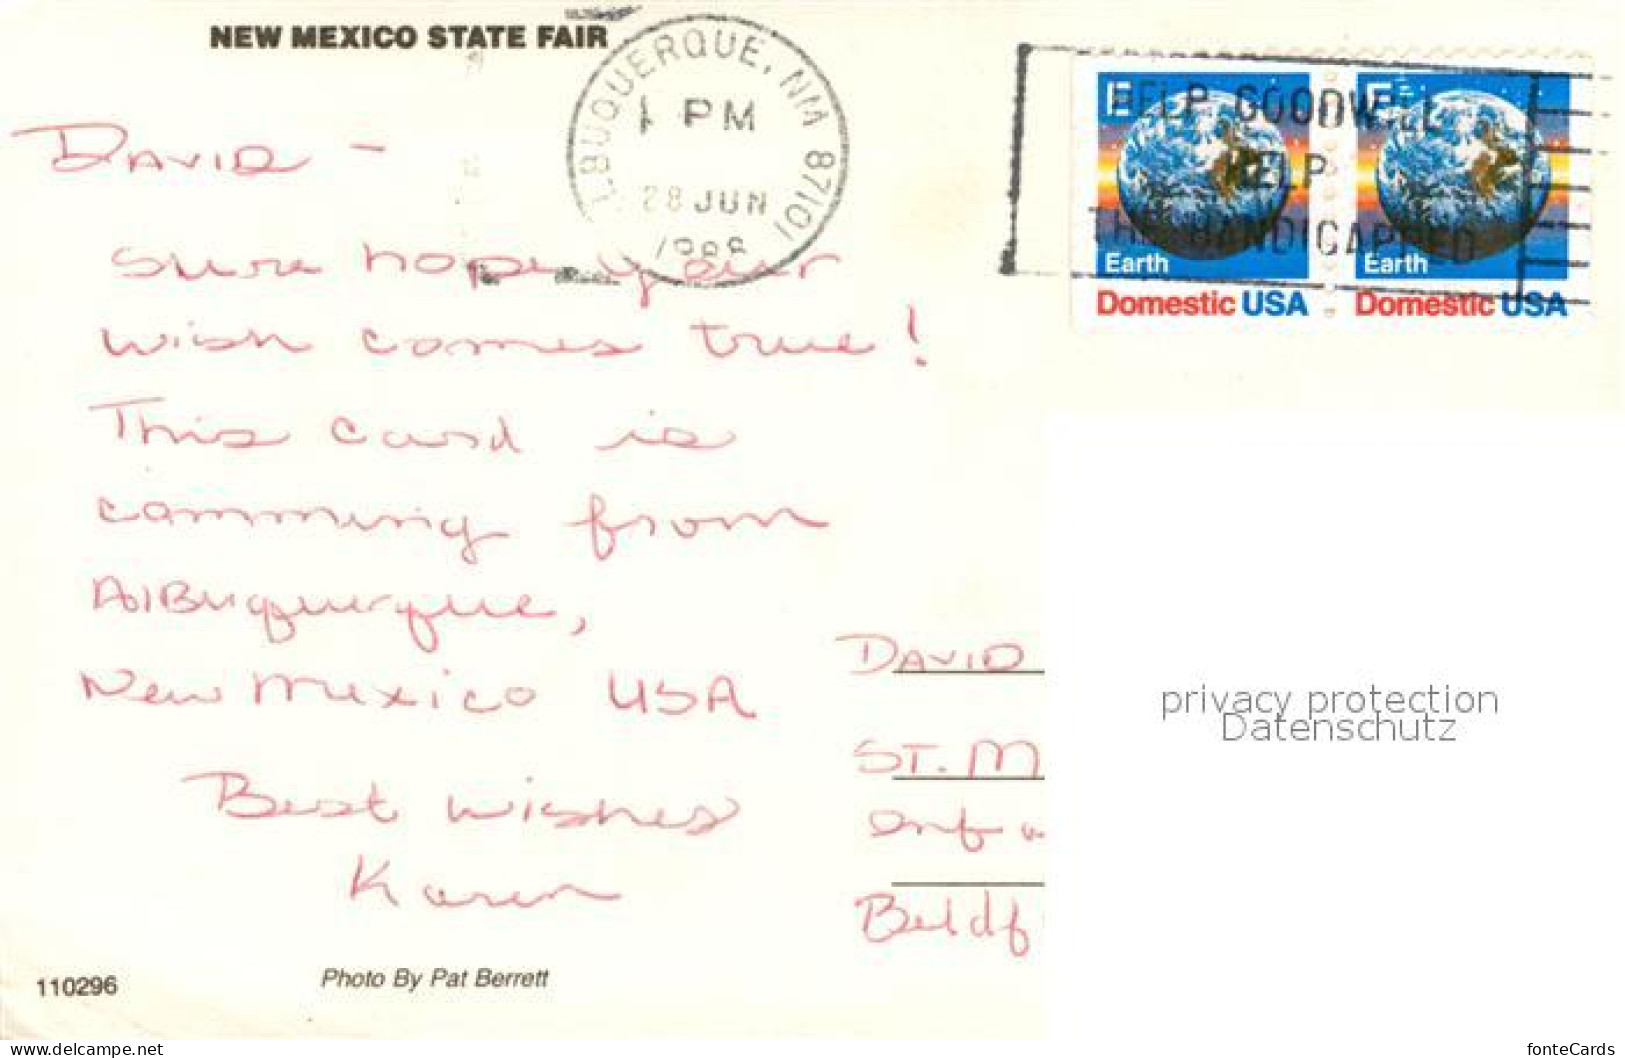 NEW MEXICO STATE FAIR
ALBUQUERQUE, NM 87101
PM
28 JUN
HELP GOODWILL
HELP
THE HANDICAPPED
E
Earth
Domestic USA
E
Earth
Domestic USA
DAVID -
Sure hope your
wish comes true!
This card is
comming from
AlBuquerque,
New Mexico USA
Best Wishes
Karen
DAVID
ST. M
privacy protection
Datenschutz
110296
Photo By Pat Berrett
www.delcampe.net
fonteCards